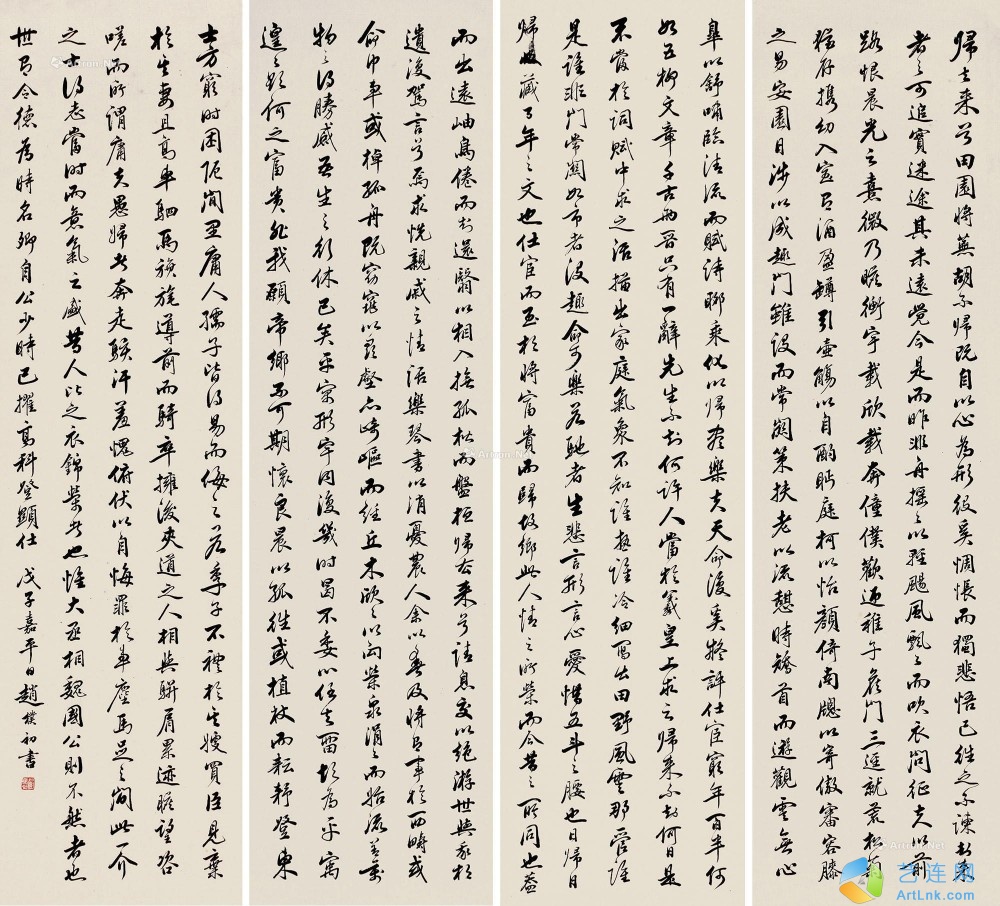 歸去來兮田園將蕪胡不歸既自以心為形役奚惆悵而獨悲悟已往之不諫知來
者之可追實迷途其未遠覺今是而昨非舟搖〻以輕颺風飄〻而吹衣問征夫以前
路恨晨光之熹微乃瞻衡宇載欣載奔僮僕歡迎稚子候門三逕就荒松菊
猶存攜幼入室有酒盈罇引壺觴以自酌眄庭柯以怡顏倚南窗以寄傲審容膝
之易安園日涉以成趣門雖設而常關策扶老以流憩時矯首而遐觀雲無心
皋以舒嘯臨清流而賦詩聊乘化以歸盡樂夫天命復奚疑評仕宦窮年百年何
如五柳文章千古兩晉只有一辭先生不知何許人當於羲皇上求之歸來不知何日是
不當於詞賦中求之語描出家庭氣象不知誰熱誰冷細寫出田野風雲那管誰
是誰非門常關如市者沒趣命可樂若馳者生悲言形言心愛惜五斗之腰也日歸日
歸藏千年之文也仕宦而至於將富貴而歸故鄉此人情之所榮而今昔之所同也蓋
而出遠岫鳥倦而知還翳以相入撫孤松而盤桓歸去來兮請息交以絕游世與我相
遺復駕言兮焉求悅親戚之情話樂琴書以消憂農人余以春及將有事於西疇或
命巾車或棹孤舟既窈窕以尋壑亦崎嶇而經丘木欣〻以向榮泉涓〻而始流善萬
物之得勝感吾生之行休已矣乎寓形宇內復幾時曷不委心任去留胡為乎
遑〻欲何之富貴非我願帝鄉不可期懷良晨以孤往或植杖而耘耔登東
士方窮時困阨閭里庸人孺子皆得易而侮之若季子不禮於其嫂買臣見棄
於其妻且高車駟馬旗旄導前而騎卒擁後夾道之人相與駢肩累迹瞻望咨
嗟而所謂庸夫愚婦者奔走駭汗羞愧俯伏以自悔罪於車塵馬足之間此一介
之士得志當時而意氣之盛昔人比之衣錦榮者也惟大丞相魏國公則不然者也
世有令德為時名卿自公少時已擢高科登顯仕 戊子嘉平日趙樸初書
艺连网
ArtLnk.com
Artron.Net